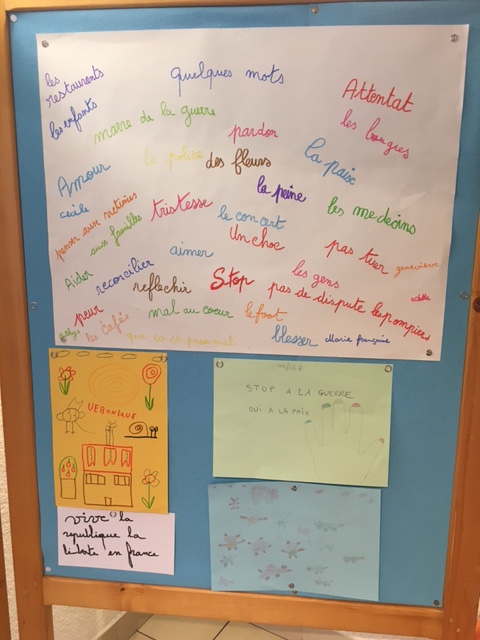 quelques mots
les
restaurants
Attentat
les enfants
marre de la guerre
pardon
les bougies
la police
des fleurs
la paix
Amour
la peine
cecile
penser aux victimes
aux familles
tristesse
le concert
les medecins
Un choc
pas tuer
genevieve
aimer
Aider
reconcilier
reflechir
Stop
les gens
pas de dispute
les pompiers
peur
mal au coeur
le foot
les cafés
blesser
Marie françoise
VERONIQUE
STOP A LA GUERRE
OUI A LA PAIX
vive la
republique la
liberte en france